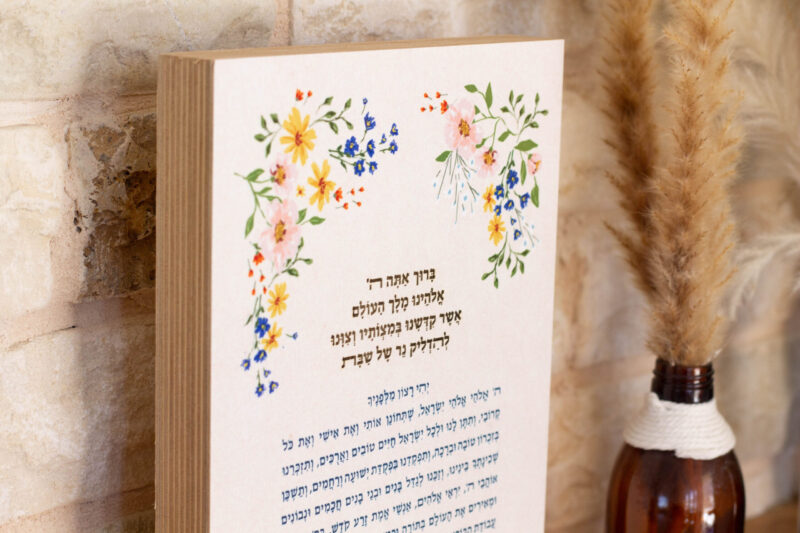 בָּרוּךְ אַתָּה ה'
אֱלֹהֵינוּ מֶלֶךְ הָעוֹלָם
אֲשֶׁר קִדְּשָׁנוּ בְּמִצְוֹתָיו וְצִוָּנוּ
לְהַדְלִיק נֵר שֶׁל שַׁבָּת
יְהִי רָצוֹן מִלְּפָנֶיךָ
ה' אֱלֹהַי אֱלֹהֵי יִשְׂרָאֵל, שֶׁתְּחוֹנֵן אוֹתִי וְאֶת אִישִׁי וְאֶת כֹּל
קְרוֹבַי, וְתִתֵּן לָנוּ וּלְכָל יִשְׂרָאֵל חַיִּים טוֹבִים וַאֲרֻכִּים, וְתִזְכְּרֵנוּ
בְּזִכְרוֹן טוֹבָה וּבְרָכָה, וְתִפְקְדֵנוּ בִּפְקֻדַּת יְשׁוּעָה וְרַחֲמִים, וְתַשְׁכֵּן
שְׁכִינָתְךָ בֵּינֵינוּ, וְזַכֵּנוּ לְגַדֵּל בָּנִים וּבְנֵי בָנִים חֲכָמִים וּנְבוֹנִים
אוֹהֲבֵי ה', יִרְאֵי אֱלֹהִים, אַנְשֵׁי אֱמֶת זֶרַע קֹדֶשׁ,
וּמְאִירִים אֶת הָעוֹלָם בְּתוֹרָה
עֲבוֹדַת